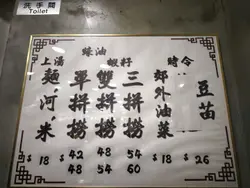 洗手間
Toilet
蠔油
上湯 蝦籽 時令
麵,河,米
單拼撈
雙拼撈
三拼撈
郊外油菜
豆苗
$18 $42 48 54 $18 $26
48 54 60